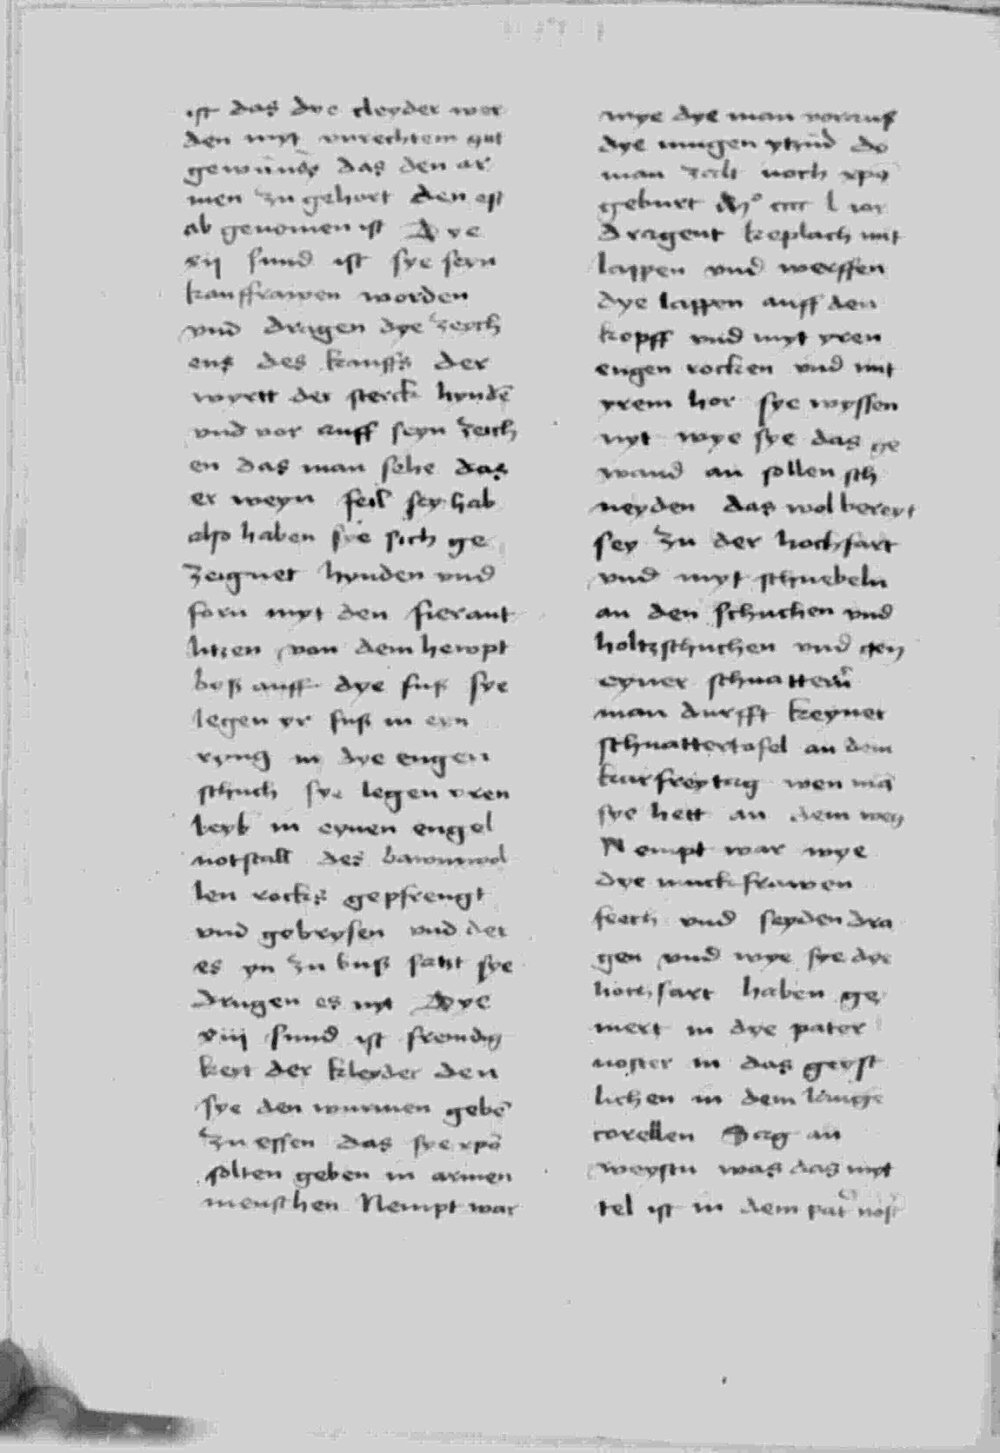 ist das dye cleyder wer
den myt vnrechtem gut
gewūnē das den ar
men zu gehort den est
ab genomen ist Dye
vij sund ist sye sern
kauffrawen worden
vnd dragen dye zeych
ens des kauffs der
wyrtt der sterck hyndē
vnd vor auff seyn zeich
en das man sehe das
er weyn feil sey hab
also haben sye sich ge
zeignet hynden vnd
forn myt den fierant
litzen von dem hewpt
byß auff dye fuß sye
legen yr fuß in eyn
ryng in dye engen
schuch sye legen yren
leyb in eynen engel
notstall des bawmwol
len rocks gepfrengt
vnd gebrysen vnd der
es yn zu buß satzt sye
drugen es nyt Dye
viii sund ist fremdig
keyt der kleyder den
sye den wurmen gebē
zu essen das sye xpō
solten geben in armen
menschen Nempt war
wye dye man vorauß
dye iungen ytzūd do
man zalt noch xpō
geburt Mº cccc l iar
dragent keplach mit
lappen vnd werffen
dye lappen auff den
kopff vnd myt yren
engen rocken vnd mit
yrem hor sye wyssen
nyt wye sye das ge
wand an sollen sch
neyden das wol bereyt
sey zu der hochfart
vnd myt schnebeln
an den schuchen vnd
holtzschuchen vnd gen
eyner schnattern
man durfft keyner
schnattertafel an dem
karfreytag wen mā
sye hett an dem weg
Nempt war wye
dye nuckfrawen
feech vnd seyden dra
gen vnd wye sye dye
hochfart haben ge
mert in dye pater
noster in das geyst
lichen in dem lange
corellen Sag an
weystu was das myt
tel ist in dem pat nost